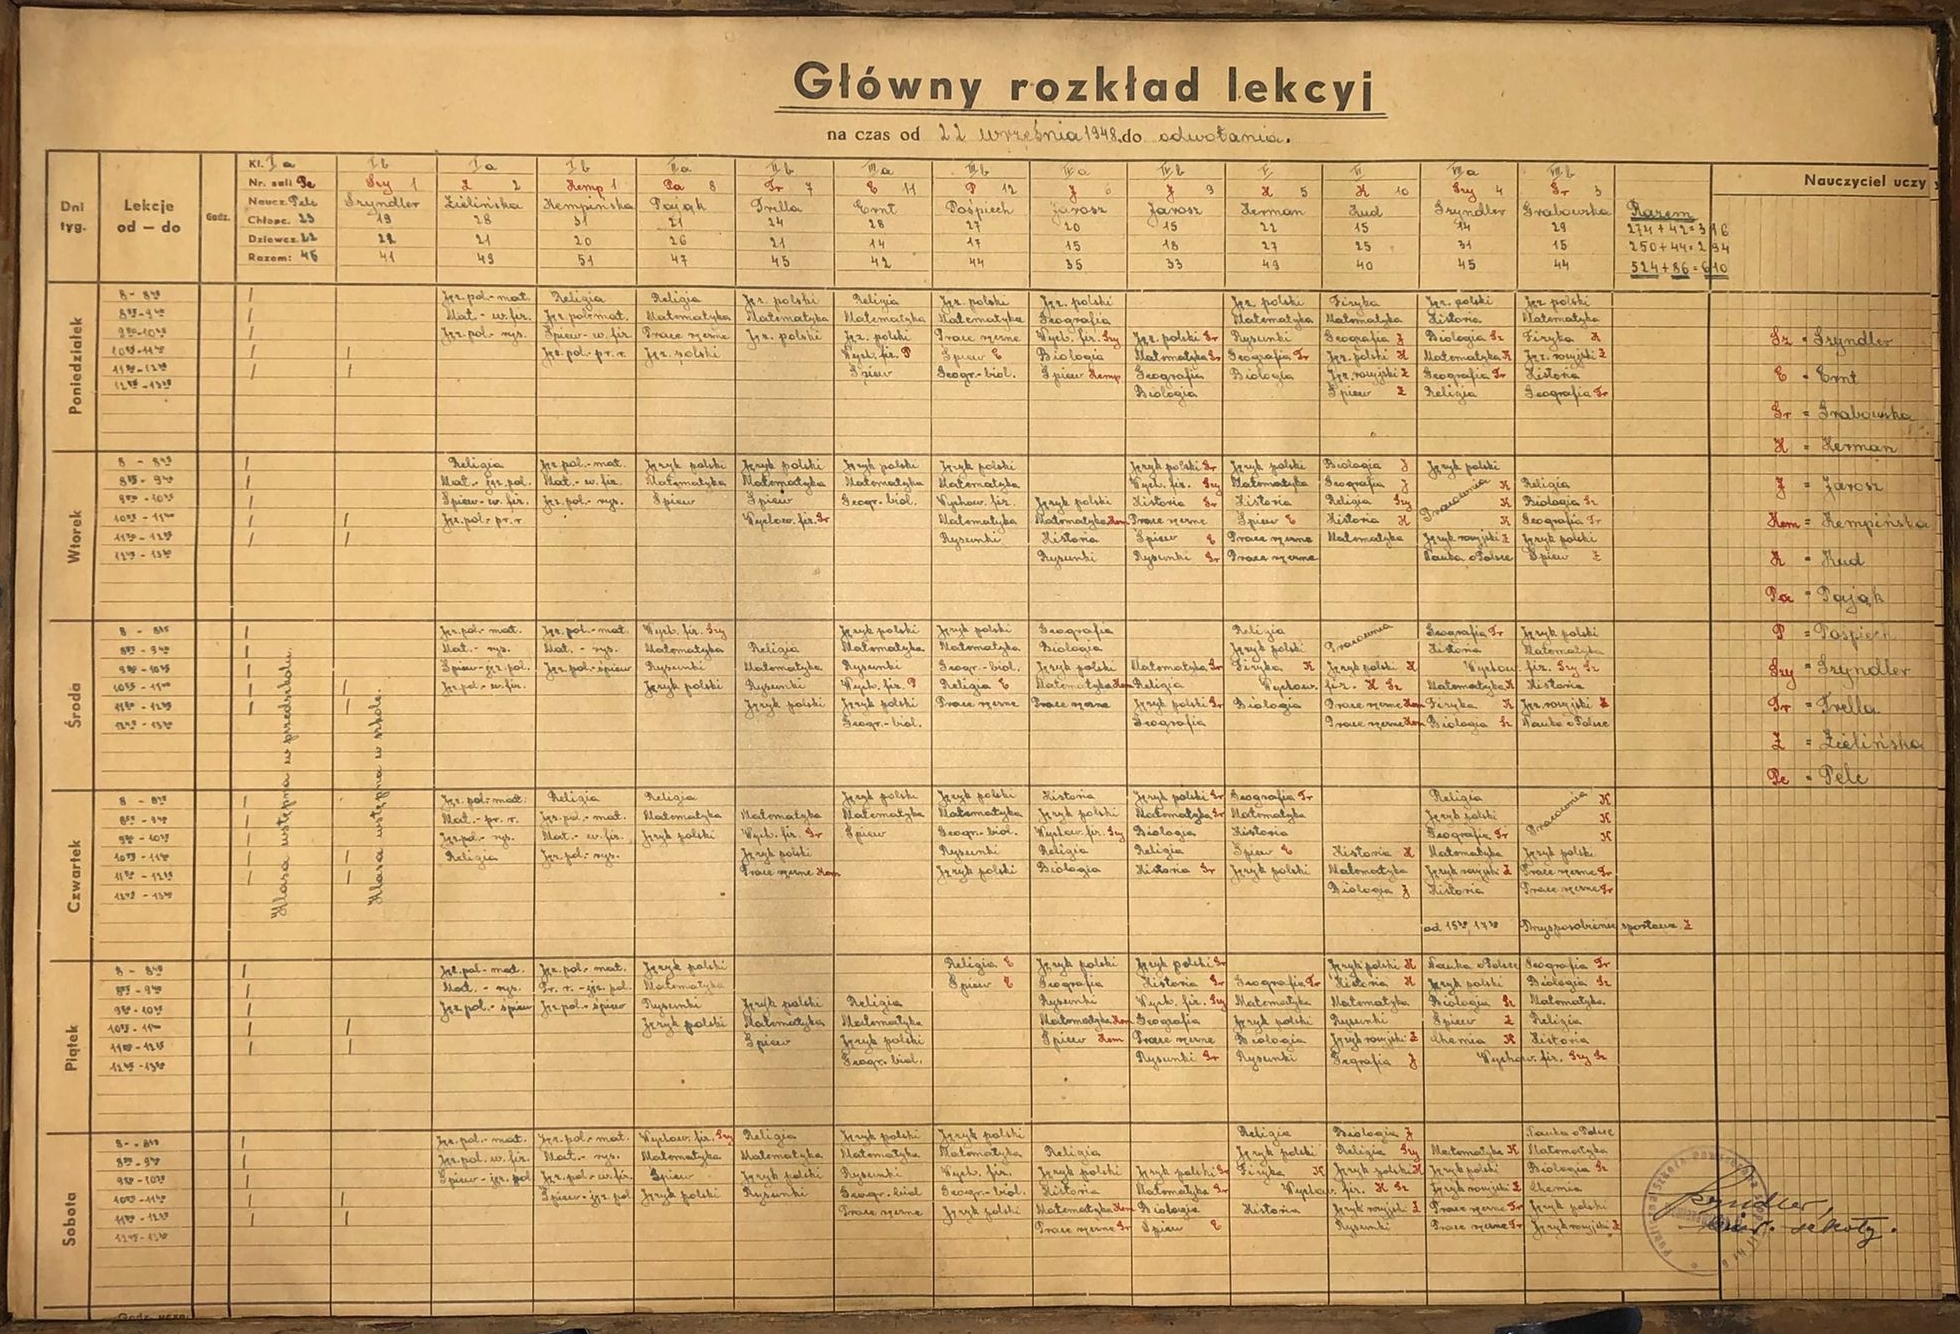 Główny rozkład lekcyj
na czas od 22 września 1948 do odwołania.
Dni tyg.
Lekcje od — do
Godz.
Kl. I a I b I a I b II a II b III a III b IV a IV b V VI VII a VII b
Nr. sali Pe Szy 1 Z 2 Kemp 1 Pa 8 Tr 7 E 11 P 12 J 6 J 9 H 5 K 10 Szy 4 Gr 3
Naucz. Pelc Szyndler Zielińska Kempińska Pająk Trella Ernt Pośpiech Jarosz Jarosz Herman Kud Szyndler Grabowska Razem
Chłopc. 23 19 28 31 21 24 28 27 20 15 22 15 14 29 274 + 42 = 316
Dziewcz. 22 22 21 20 26 21 14 17 15 18 27 25 31 15 250 + 44 = 294
Razem: 45 41 49 51 47 45 42 44 35 33 49 40 45 44 524 + 86 = 610
Nauczyciel uczy
Poniedziałek
Jęz. pol.- mat. Religia Religia Jęz. polski Religia Jęz. polski Jęz. polski Jęz. polski Fizyka Jęz. polski Jęz. polski
Mat. - w. fiz. Jęz. pol.-mat. Matematyka Matematyka Matematyka Matematyka Geografia Matematyka Matematyka Historia Matematyka
Jęz. pol.- rys. Śpiew - w. fiz. Prace ręczne Jęz. polski Jęz. polski Prace ręczne Wych. fiz. Szy Jęz. polski Gr Rysunki Geografia J Biologia Sz Fizyka K
Jęz. pol.- pr. r. Jęz. polski Wych. fiz. P Śpiew E Biologia Matematyka Gr Geografia Tr Jęz. polski H Matematyka K Jęz. rosyjski Z
Śpiew Geogr.- biol. Śpiew Kemp Geografia Biologia Jęz. rosyjski Z Geografia Tr Historia
Biologia Śpiew Z Religia Geografia Tr
Wtorek
Religia Jęz. pol.- mat. Język polski Język polski Język polski Język polski Język polski Gr Język polski Biologia J Język polski
Mat.- jęz. pol. Mat. - w. fiz. Matematyka Matematyka Matematyka Matematyka Wych. fiz. Szy Matematyka Geografia J Pracownia K Religia
Śpiew - w. fiz. Jęz. pol.- rys. Śpiew Śpiew Geogr.- biol. Wychow. fiz. Język polski Historia Gr Historia Religia Szy K Biologia Sz
Jęz. pol.- pr. r Wychow. fiz. Gr Matematyka Matematyka Kem Prace ręczne Śpiew E Historia H K Geografia Tr
Rysunki Historia Śpiew E Prace ręczne Matematyka Język rosyjski Z Język polski
Rysunki Rysunki Gr Prace ręczne Nauka o Polsce Śpiew Z
Środa
Jęz. pol.- mat. Jęz. pol.- mat. Wych. fiz. Szy Język polski Język polski Geografia Religia Geografia Tr Język polski
Mat. - rys. Mat. - rys. Matematyka Religia Matematyka Matematyka Biologia Język polski Pracownia Historia Matematyka
Śpiew - jęz. pol. Jęz. pol.- śpiew Rysunki Matematyka Rysunki Geogr.- biol. Język polski Matematyka Gr Fizyka K Język polski H Wychow. fiz. Szy Sz
Jęz. pol.- w. fiz. Język polski Rysunki Wych. fiz. P Religia E Matematyka Kem Religia Wychow. fiz. H Sz Matematyka K Historia
Język polski Język polski Prace ręczne Prace ręczne Język polski Gr Biologia Prace ręczne Kem Fizyka K Jęz. rosyjski Z
Geogr.- biol. Geografia Prace ręczne Kem Biologia Sz Nauka o Polsce
Klasa wstępna w przedszkolu.
Klasa wstępna w szkole.
Czwartek
Jęz. pol.- mat. Religia Religia Język polski Język polski Historia Język polski Gr Geografia Tr Religia Pracownia K
Mat. - pr. r. Jęz. pol.- mat. Matematyka Matematyka Matematyka Matematyka Język polski Matematyka Gr Matematyka Język polski K
Jęz. pol.- rys. Mat. - w. fiz. Język polski Wych. fiz. Gr Śpiew Geogr.- biol. Wychow. fiz. Szy Biologia Historia Geografia Tr K
Religia Jęz. pol.- rys. Język polski Rysunki Religia Religia Śpiew E Historia H Matematyka Język polski
Prace ręczne Kem Język polski Biologia Historia Gr Język polski Matematyka Język rosyjski Z Prace ręczne Tr
Biologia J Historia Prace ręczne Tr
od 15 30 17 30 Przysposobienie sportowe Z
Piątek
Jęz. pol.- mat. Jęz. pol.- mat. Język polski Religia E Język polski Język polski Gr Język polski H Nauka o Polsce Geografia Tr
Mat. - rys. Pr. r. - jęz. pol. Matematyka Śpiew E Geografia Historia Gr Geografia Tr Historia H Język polski Biologia Sz
Jęz. pol.- śpiew Jęz. pol.- śpiew Rysunki Język polski Religia Rysunki Wych. fiz. Szy Matematyka Matematyka Biologia Sz Matematyka
Język polski Matematyka Matematyka Matematyka Kem Geografia Język polski Rysunki Śpiew Z Religia
Śpiew Język polski Śpiew Kem Prace ręczne Biologia Język rosyjski Z Chemia K Historia
Geogr. biol. Rysunki Gr Rysunki Gegrafia J Wychow. fiz. Szy Sz
Sobota
Jęz. pol.- mat. Jęz. pol.- mat. Wychow. fiz. Szy Religia Język polski Język polski Religia Biologia J Nauka o Polsce
Jęz. pol. w. fiz. Mat. - rys. Matematyka Matematyka Matematyka Matematyka Religia Język polski Religia Szy Matematyka K Matematyka
Śpiew - jęz. pol Jęz. pol.- w. fiz. Śpiew Język polski Rysunki Wych. fiz. Język polski Język polski Gr Fizyka K Język polski H Język polski Biologia Sz
Śpiew - jęz. pol Język polski Rysunki Geogr - biol Geogr.- biol. Historia Matematyka Gr Wychow. fiz. H Sz Język rosyjski Z Chemia
Prace ręczne Język polski Matematyka Kem Biologia Historia Język rosyjski Z Prace ręczne Tr Język polski
Prace ręczne Gr Śpiew E Rysunki Prace ręczne Tr Język rosyjski Z
Sz = Szyndler
E = Ernt
Gr = Grabowska
H = Herman
J = Jarosz
Kem = Kempińska
K = Kud
Pa = Pająk
P = Pośpiech
Szy = Szyndler
Tr = Trella
Z = Zielińska
Pe = Pelc
Szyndler,
kier. szkoły.